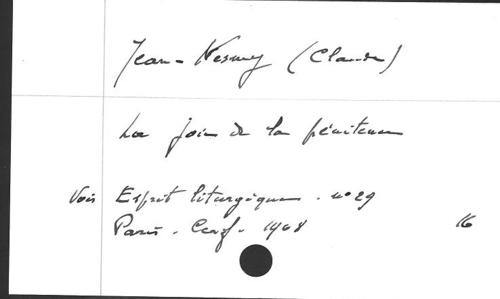 Jean-Nesmy (Claude)
La joie de la pénitence
Voir Esprit liturgique . n° 29
Paris . Cerf . 1968
16